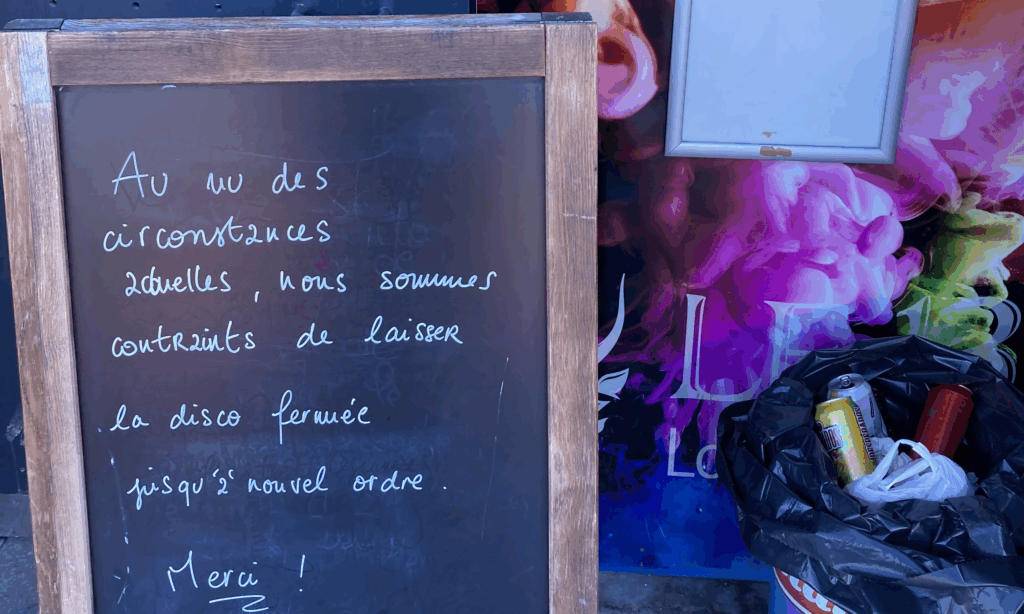 Au vu des
circonstances
actuelles, nous sommes
contraints de laisser
la disco fermée
jusqu'à nouvel ordre.
Merci !